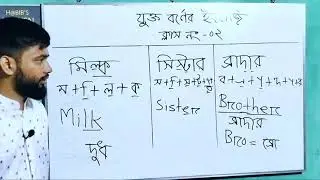 HABIB'S
যুক্ত বর্ণের ইংরেজি
ক্লাস নং-০২
মিল্ক
ম+ি+ল+ক
Milk
দুধ
সিস্টার
Sister
ব্রাদার
Brother
ব্রাদার
Bro = ব্রো